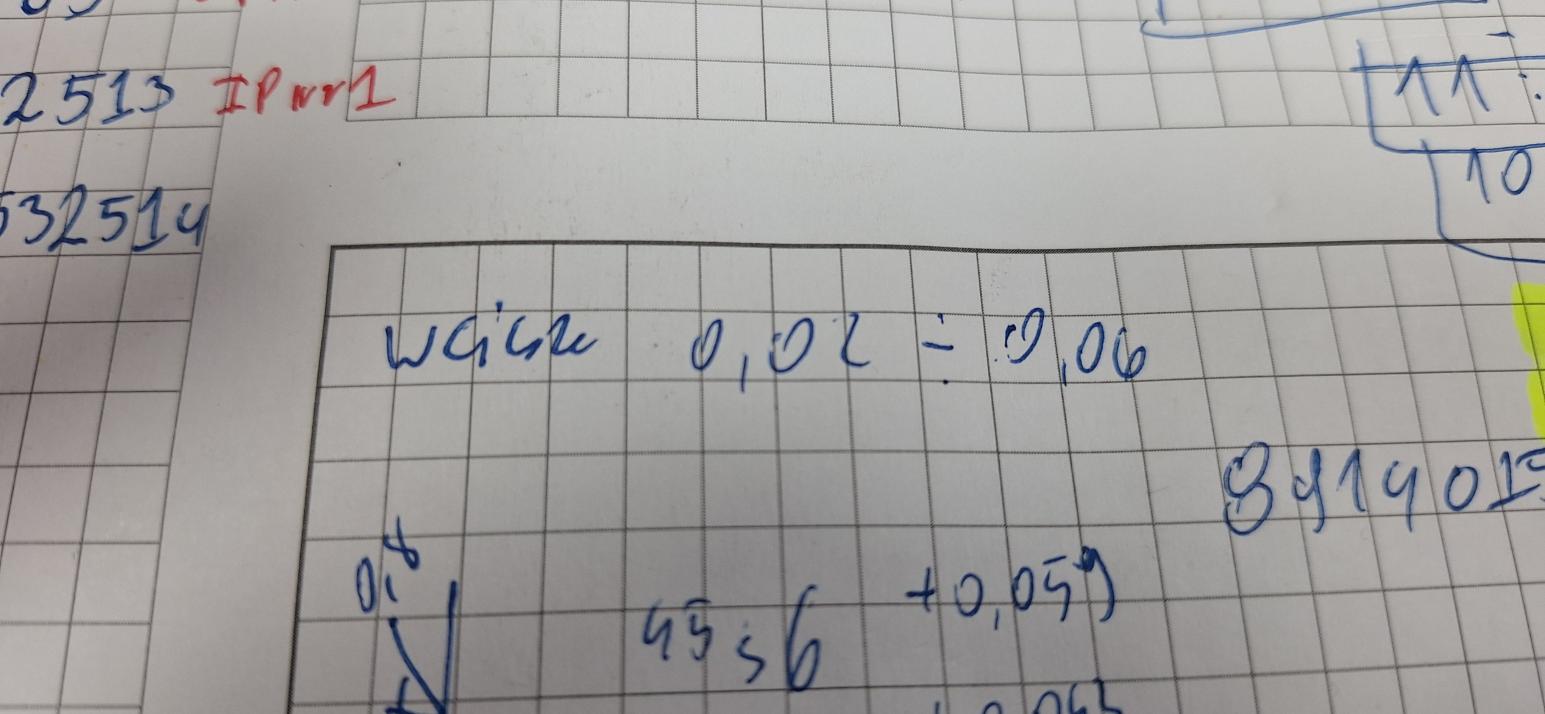 2513 IPnr1
532514
11
10
wcisk 0,02 ÷ 0,06
8914015
0,8
45s6 +0,059